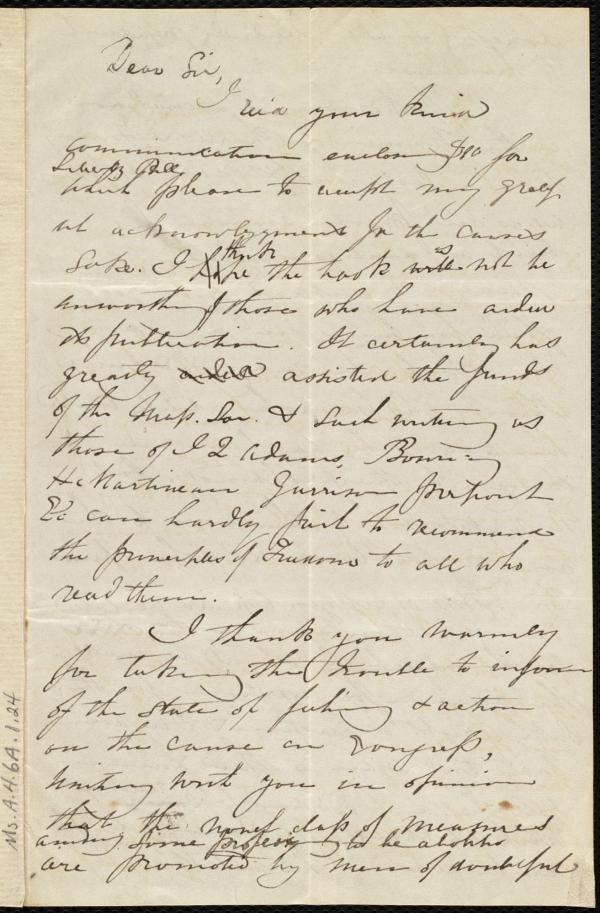 Dear Sir,
I rec'd your kind
communication enclosing $10 for
Liberty Bell,
which please to accept my gratef
ul acknowledgment for the causes
thank
sake. I the book will not be
unworthy of those who have aided
its publication. It certainly has
greatly aided assisted the funds
of the Mass. Soc. & such writing as
those of J Q Adams, Bowring
H Martineau Garrison Pierpont
&c can hardly fail to recommend
the principles of Freedom to all who
read them.
I thank you warmly
for taking the trouble to inform
of the state of feeling & action
on the cause in Congress,
Uniting with you in opinion
that the class of measures
among some professing to be abolitio
are promoted by men of doubtful
Ms. A. 4. 6A. 1. 24